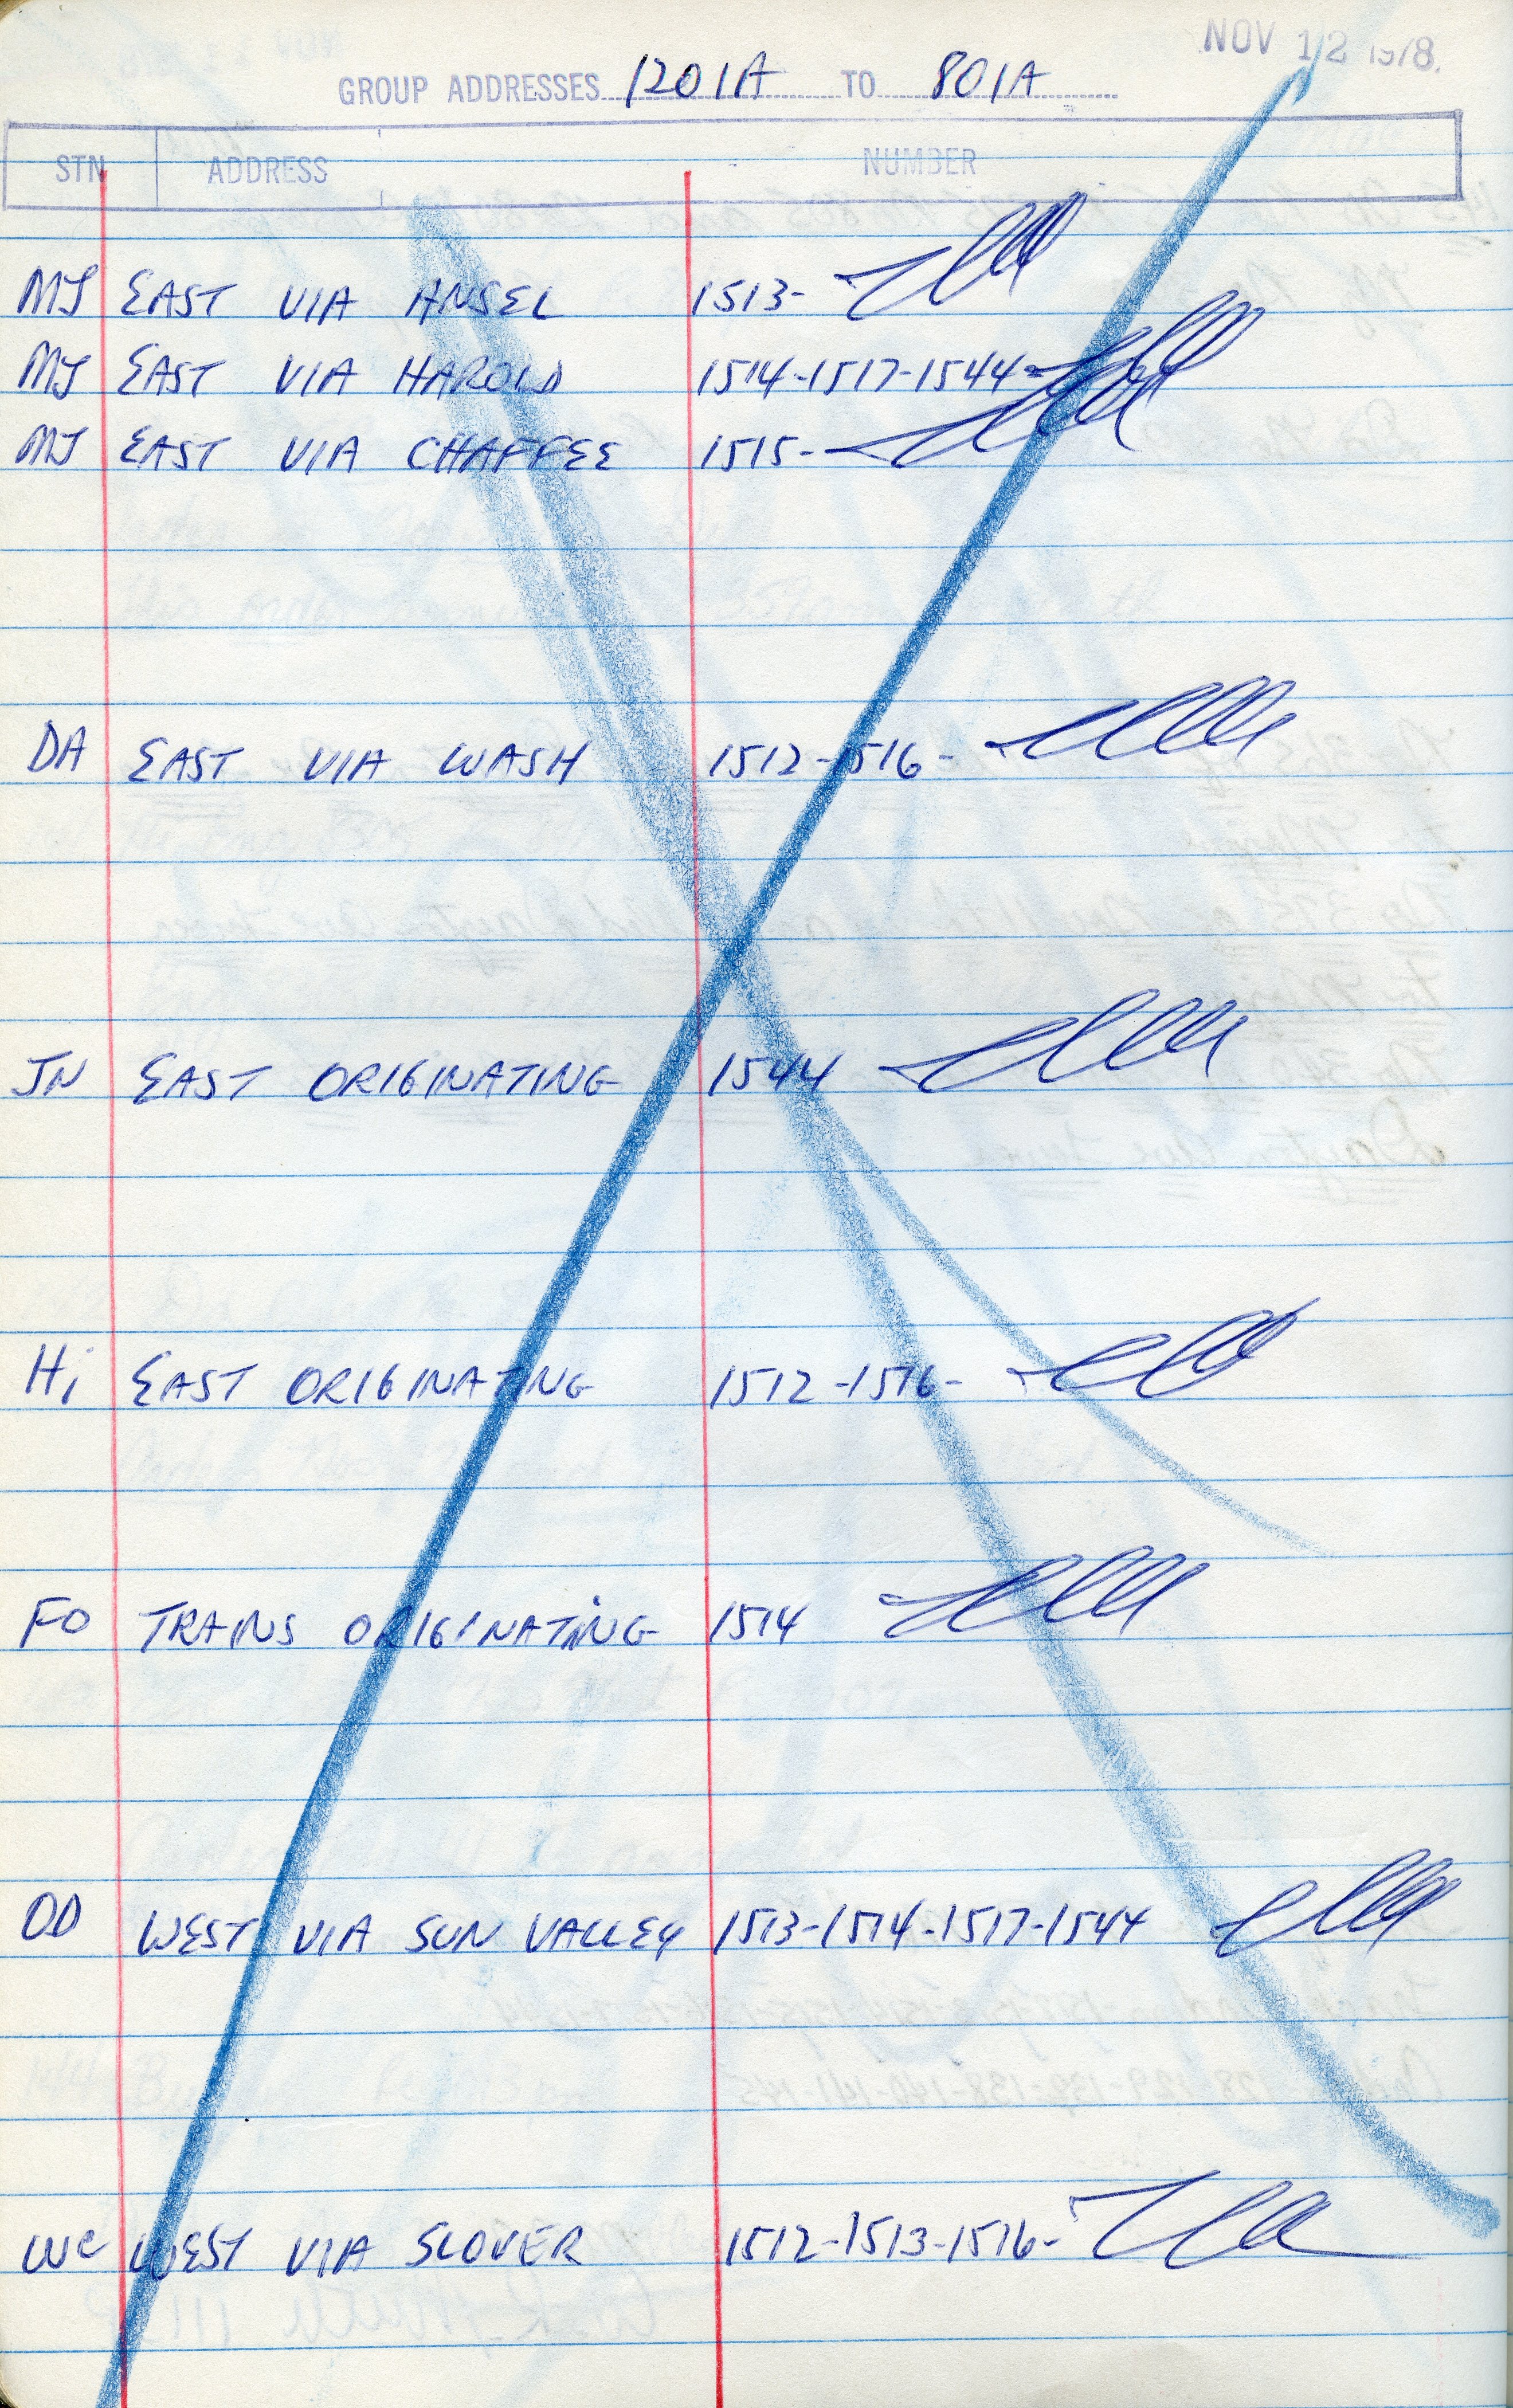 NOV 12 1978.
GROUP ADDRESSES 1201A TO 801A
STN ADDRESS NUMBER
MJ EAST VIA ANSEL 1513-
MJ EAST VIA HAROLD 1514-1517-1544-
MJ EAST VIA CHAFFEE 1515-
DA EAST VIA WASH 1512-1516-
JN EAST ORIGINATING 1544
Hi EAST ORIGINATING 1512-1516-
FO TRAINS ORIGINATING 1514
OD WEST VIA SUN VALLEY 1513-1514-1517-1544
WC WEST VIA SLOVER 1512-1513-1516-